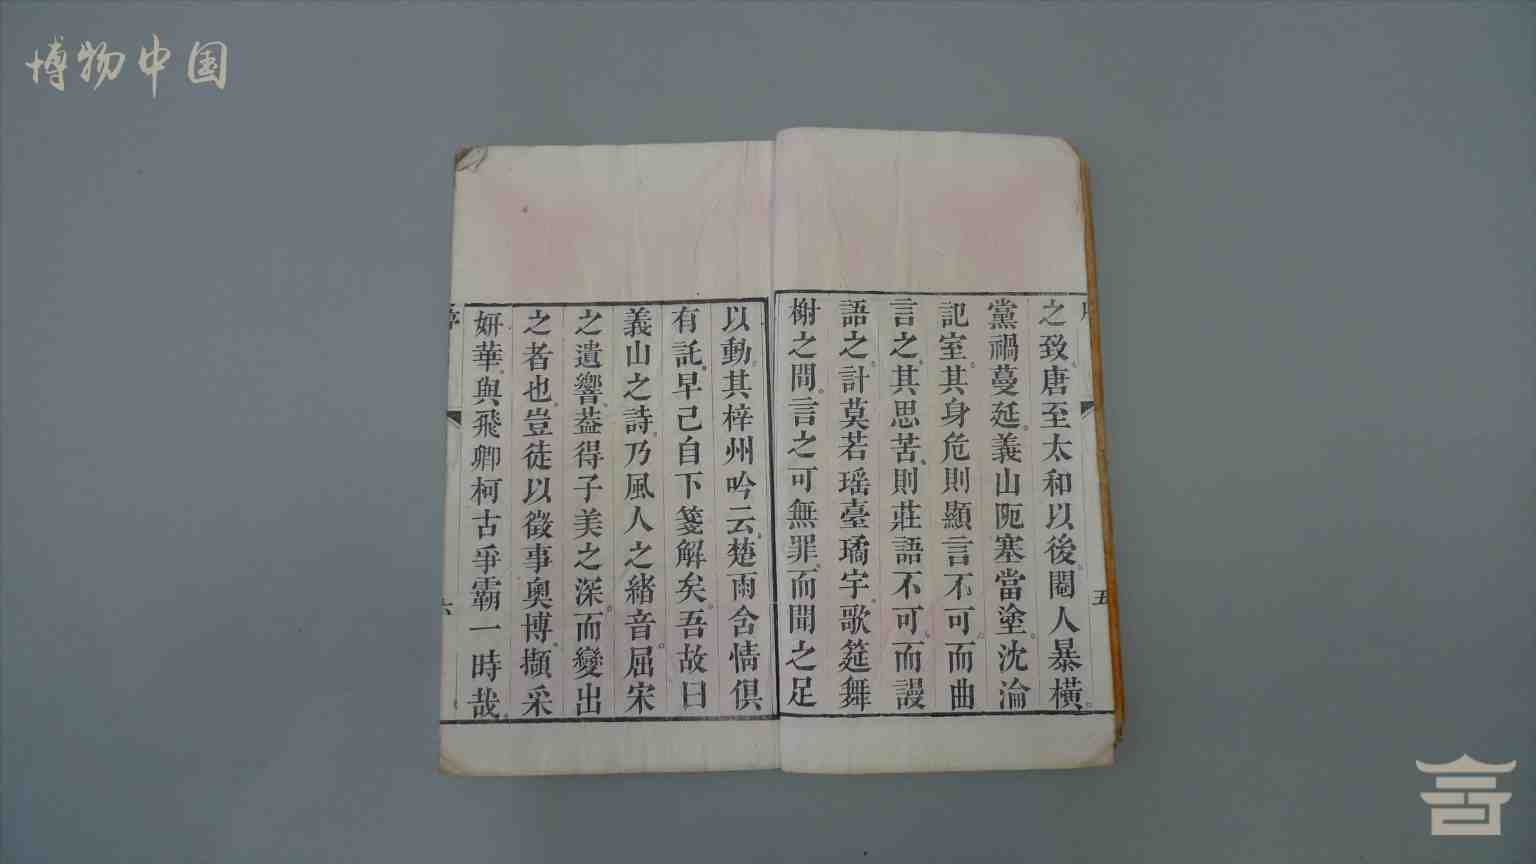 博物中国
之致唐至太和以後閹人暴橫
黨禍蔓延義山阨塞當塗沈淪
記室其身危則顯言不可而曲
言之其思苦則莊語不可而謾
語之計莫若瑶臺璚宇歌筵舞
榭之間言之可無罪而聞之足
以動其梓州吟云楚雨含情俱
有託早已自下箋解矣吾故曰
義山之詩乃風人之緒音屈宋
之遺響葢得子美之深而變出
之者也豈徒以徵事奧博擷采
妍華與飛卿柯古爭霸一時哉
五
六